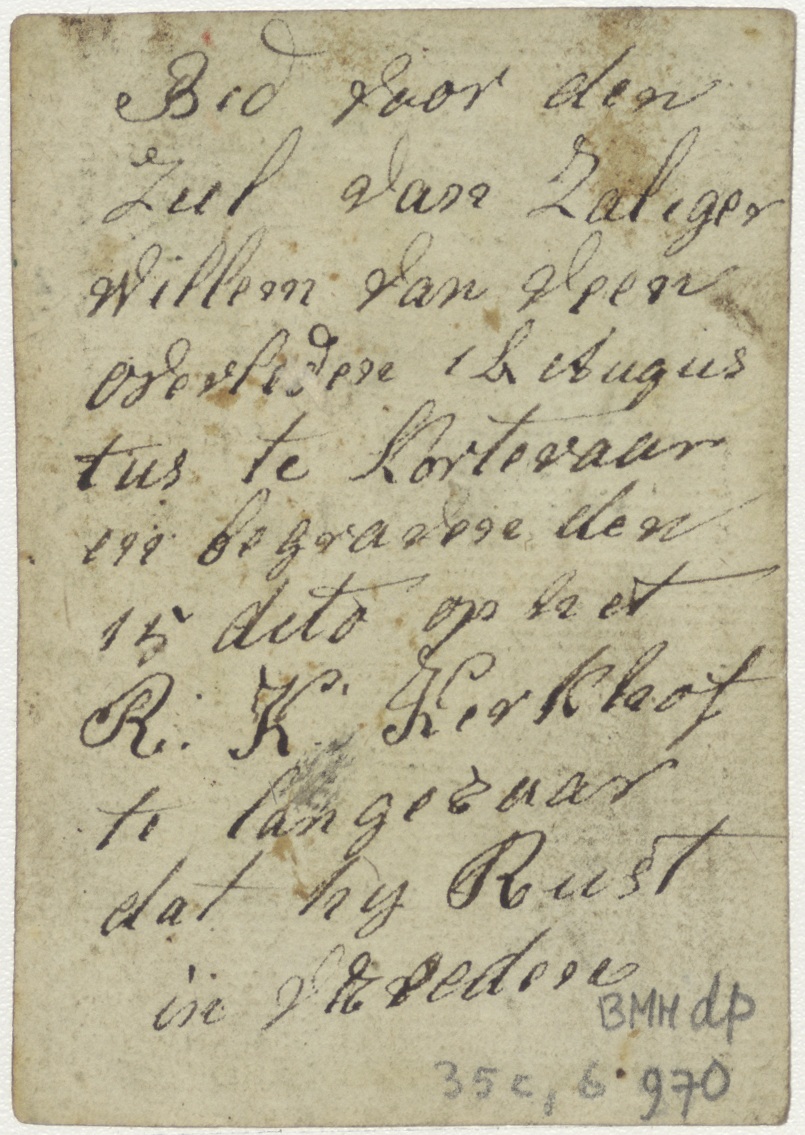 Bid voor den
Ziel van Zaliger
Willem van Veen
overliden 12 Augus
tus te Kortevaar
en begraven den
15 dito op het
R. K. Kerkhof
te langevaar
dat hy Rust
in Vreeden
BMH dp
35c, 6.970